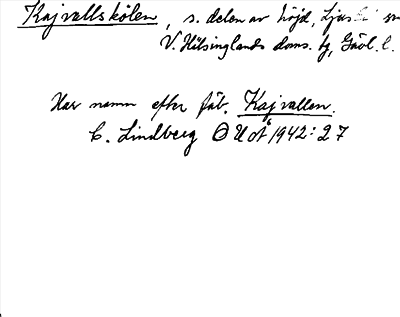 Kajvallskölen, s. delen av höjd, Ljus
V. Hälsinglands doms. tg, Gävl. l.
Har namn efter fäb. Kajvallen.
C. Lindberg OUoÅ 1942: 27